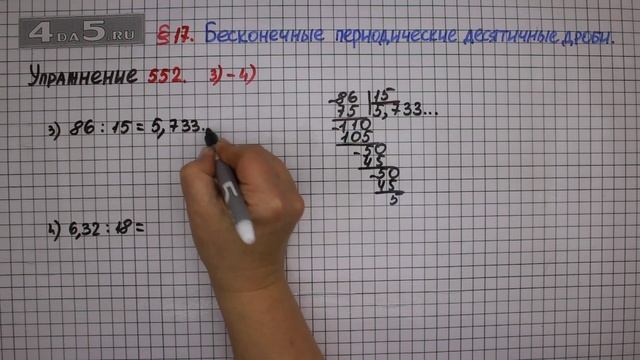 4DA5.RU
§17. Бесконечные периодические десятичные дроби.
Упражнение 552. 3)-4)
3) 86 : 15 = 5,733..
-86 | 15
75 | 5,733...
-110
105
-50
45
-50
45
5
4) 6,32 : 18 =